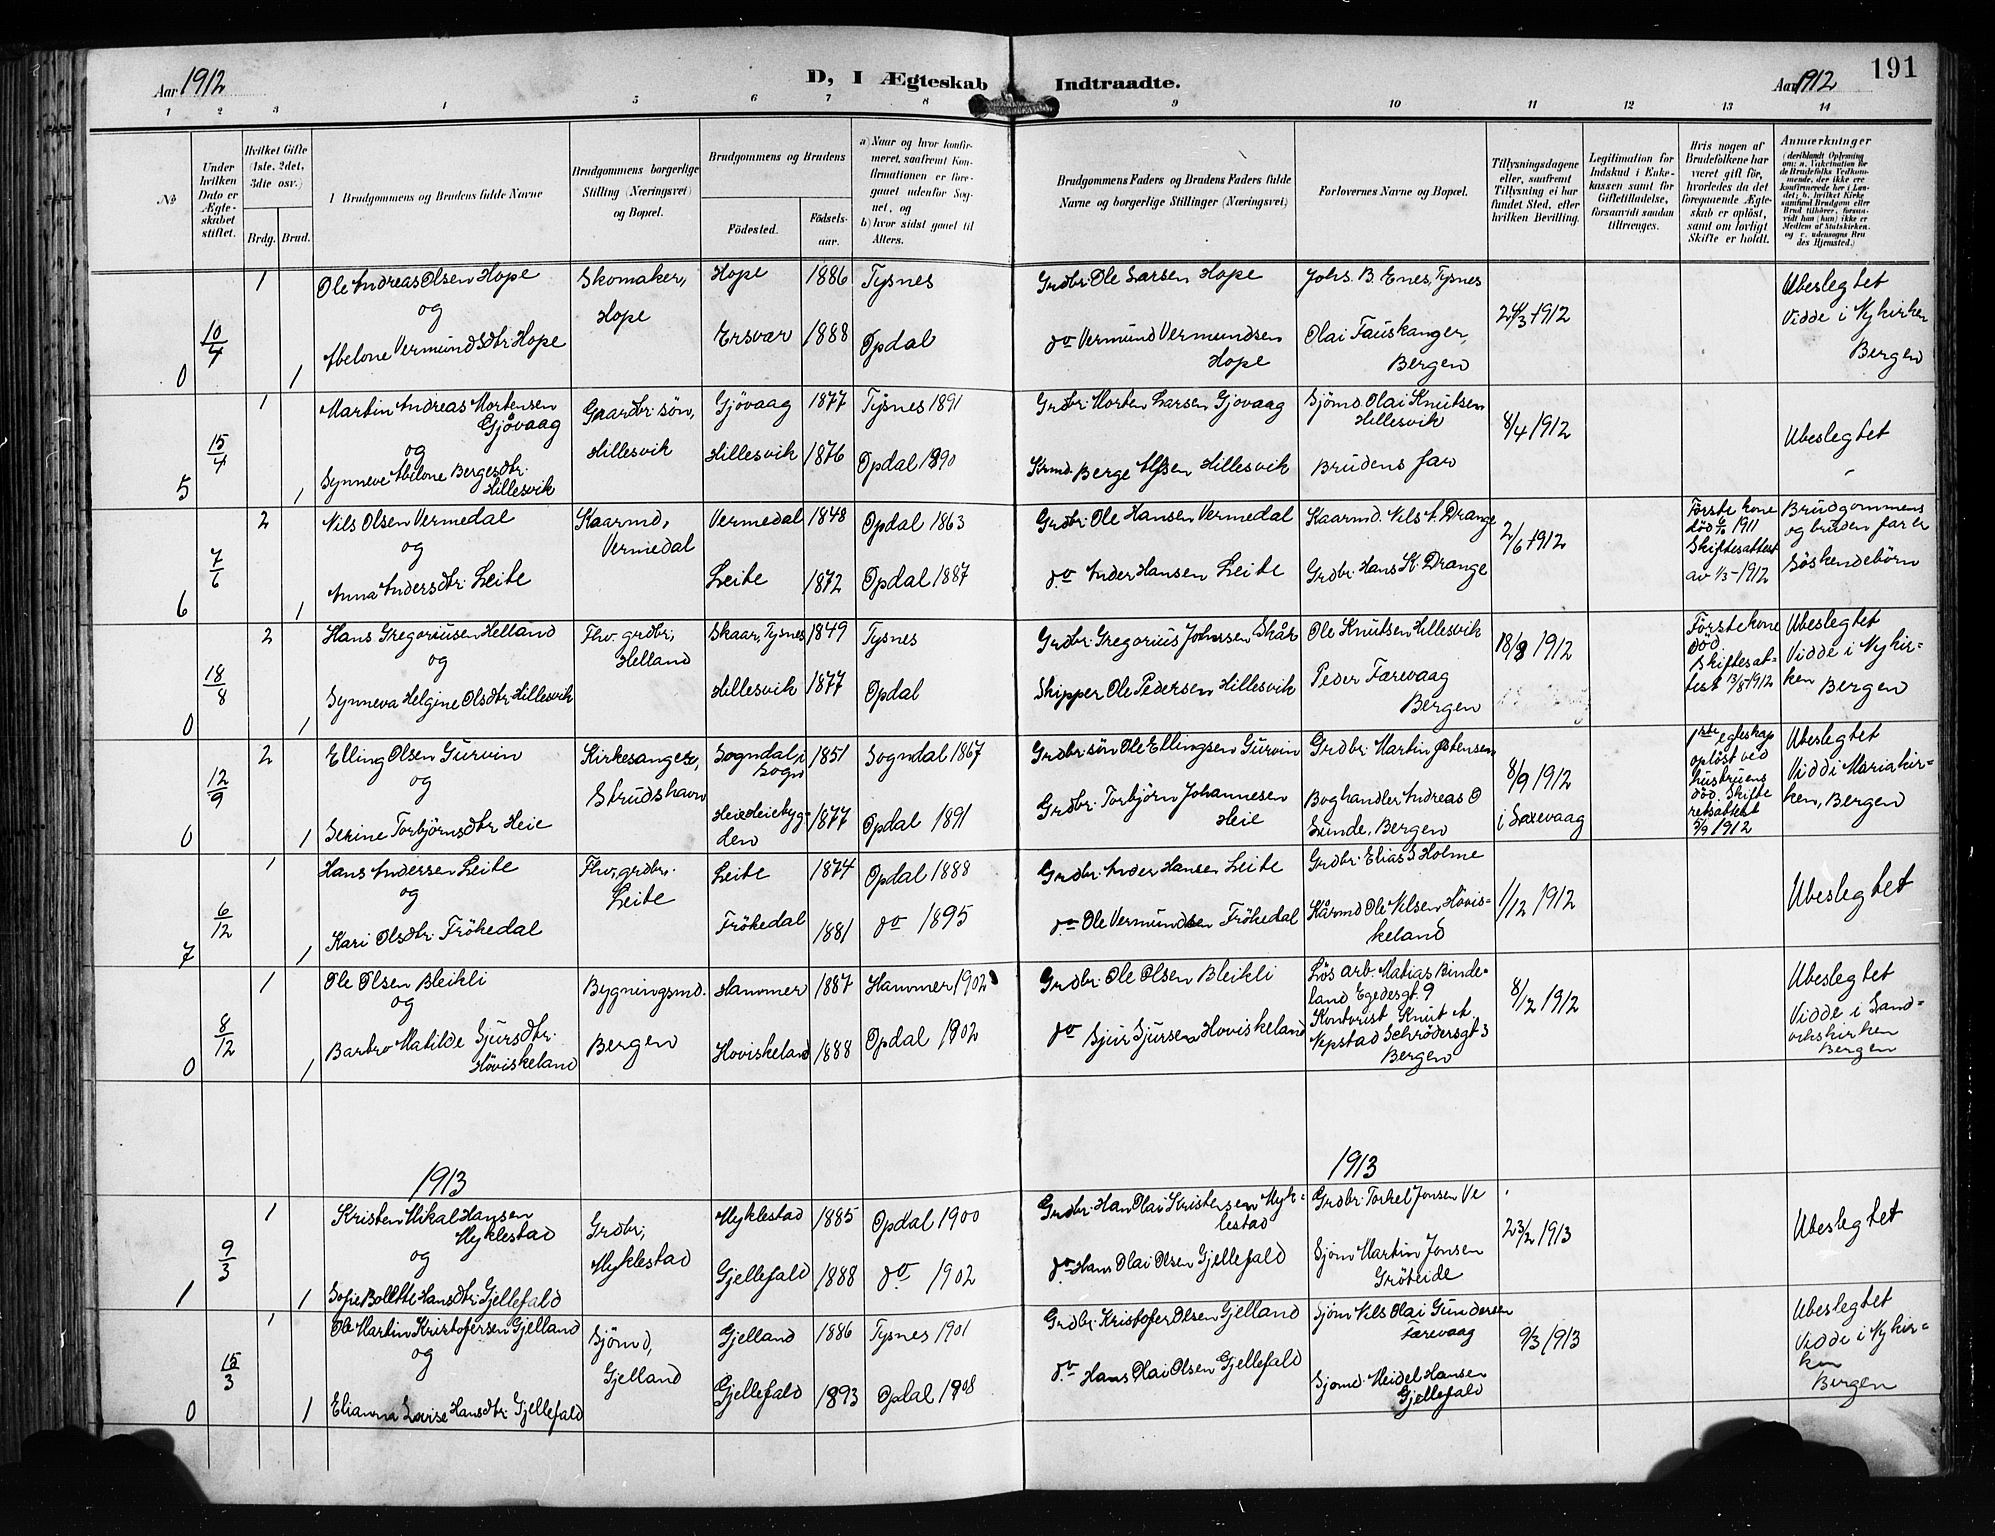 191
Aar 1912
D, I Ægteskab Indtraadte.
Aar 1912
1 2 3 4 5 6 7 8 9 10 11 12 13 14
No
Under hvilken Dato er Ægteskabet stiftet.
Hvilket Gifte (1ste, 2det, 3die osv.)
Brdg. Brud.
Brudgommens og Brudens fulde Navne
Brudgommens borgerlige Stilling (Næringsvei) og Bopæl.
Brudgommens og Brudens
Fødested.
Fødselsaar.
a) Naar og hvor konfirmeret, saafremt Konfirmationen er foregaaet udenfor Sognet, og
b) hvor sidst gaaet til Alters.
Brudgommens Faders og Brudens Faders fulde Navne og borgerlige Stillinger (Næringsvei)
Forlovernes Navne og Bopæl.
Tillysningsdagene eller, saafremt Tillysning ei har fundet Sted, efter hvilken Bevilling.
Legitimation for Indskud i Enkekassen samt for Giftetilladelse, forsaavidt saadan tiltrænges.
Hvis nogen af Brudefolkene har været gift før, hvorledes da det foregaaende Ægteskab er opløst, samt om lovligt Skifte er holdt.
Anmærkninger
(deriblandt Oplysning om: a. Vakcination for de Brudefolks Vedkommende, der ikke ere konfirmerede her i Landet; b. hvilket Kirkesamfund Brudgom eller Brud tilhører, forsaavidt han (hun) ikke er Medlem af Statskirken, og c. udensogns Brudes Hjemsted.)
0 10/4 1 1
Ole Andreas Olsen Hope
og
Abelone Vermundsdtr. Hope
Skomaker,
Hope
Hope 1886 Tysnes
Ersvær 1888 Opdal
Grdbr. Ole Larsen Hope
do Vermund Vermundsen
Hope
Johs. B. Enes, Tysnes
Olai Fauskanger,
Bergen
24/3 1912
Ubeslegtet
Vidde i Nykirken
Bergen
5 15/4 1 1
Martin Andreas Mortensen
Gjövaag
og
Synneve Abelone Bergesdtr.
Hillesvik
Gaardbr. søn,
Hillesvik
Gjövaag 1877 Tysnes 1891
Hillesvik 1876 Opdal 1890
Grdbr. Morten Larsen Gjövaag
Krmd. Berge Alfsen Hillesvik
Sjömd Olai Knutsen
Hillesvik
Brudens far
8/4 1912
Ubeslegtet
6 7/6 2 1
Nils Olsen Vermedal
og
Anna Andersdtr. Leite
Kaarmd,
Vermedal
Vermedal 1848 Opdal 1863
Leite 1872 Opdal 1887
Grdbr. Ole Hansen Vermedal
do Ander Hansen Leite
Kaarmd. Nils A. Drange
Grdbr. Hans K. Drange
2/6 1912
Første kone
död 1911
Skifteattest
av 1/3-1912
Brudgommens
og bruden far er
Söskendebörn
0 18/8 2 1
Hans Gregoriusen Helland
og
Synneva Helgine Olsdtr. Hillesvik
Fhv. grdbr,
Helland
Skaar, Tysnes 1849 Tysnes
Hillesvik 1877 Opdal
Grdbr. Gregorius Johnsen Skår
Skipper Ole Pedersen Hillesvik
Ole Knutsen Hillesvik
Peder Færevaag
Bergen
18/8 1912
Første kone
död.
Skifteat-
test 13/8-1912
Ubeslegtet
Vidde i Nykir-
ken Bergen
0 12/9 2 1
Elling Olsen Gurvin
og
Serine Torbjörnsdtr. Heie
Kirkesanger,
Strudshavn
Sogndal i
Sogn 1851 Sogndal 1867
Heie Heiebyg-
den 1877 Opdal 1891
Grdbr. søn Ole Ellingsen Gurvin
Grdbr. Torbjörn Johannesen
Heie
Grdbr. Martin Østensen
Boghandler Andreas O
Sunde, Bergen
8/9 1912
i Saxevaag
1ste egteskap
oplöst ved
hustruens
död. Skifte
retsattest
5/9 1912
Ubeslegtet
Vidd i Mariakir-
ken, Bergen
7 6/12 1 1
Hans Andersen Leite
og
Kari Olsdtr. Frökedal
Fhv. grdbr.
Leite
Leite 1874 Opdal 1888
Frökedal 1881 do 1895
Grdbr. Ander Hansen Leite
do Ole Vermundsen Frökedal
Grdbr. Elias S Holme
Kårmd Ole Nilsen Hövis-
keland
1/12 1912
Ubeslegtet
0 8/12 1 1
Ole Olsen Bleikli
og
Barbro Matilde Sjursdtr.
Höviskeland
Bygningsmd.
Bergen
Hammer 1887 Hammer 1902
Hoviskeland 1888 Opdal 1902
Grdbr. Ole Olsen Bleikli
do Sjur Sjursen Hoviskeland
Løs arb. Matias Binde-
land Egedesgt. 9
Kontorist Knut A.
Nepstad Schrödersgt 3
Bergen
8/12 1912
Ubeslegtet
Vidde i Sand-
vikskirken
Bergen
1913
1913
1 9/3 1 1
Kristen Mikal Hansen
Myklestad
og
Sofie Bolette Hansdtr. Gjellefald
Grdbr,
Myklestad
Myklestad 1885 Opdal 1900
Gjellefald 1888 do 1902
Grdbr. Han Olai Kristensen Myk-
lestad
do Hans Olai Olsen Gjellefald
Grdbr. Torkel Jonsen Ve
Sjöm Martin Jonsen
Gröteide
23/2 1913
Ubeslegtet
0 15/3 1 1
Ole Martin Kristofersen Gjelland
og
Elianna Lovise Hansdtr. Gjellefald
Sjömd,
Gjelland
Gjelland 1886 Tysnes 1901
Gjellefald 1893 Opdal 1908
Grdbr. Kristofer Olsen Gjelland
do Hans Olai Olsen Gjellefald
Sjöm Nils Olai Gundersen
Færevaag
Sjömd. Meidel Hansen
Gjellefald
9/3 1913
Ubeslegtet
Vidde i Nykir-
ken
Bergen